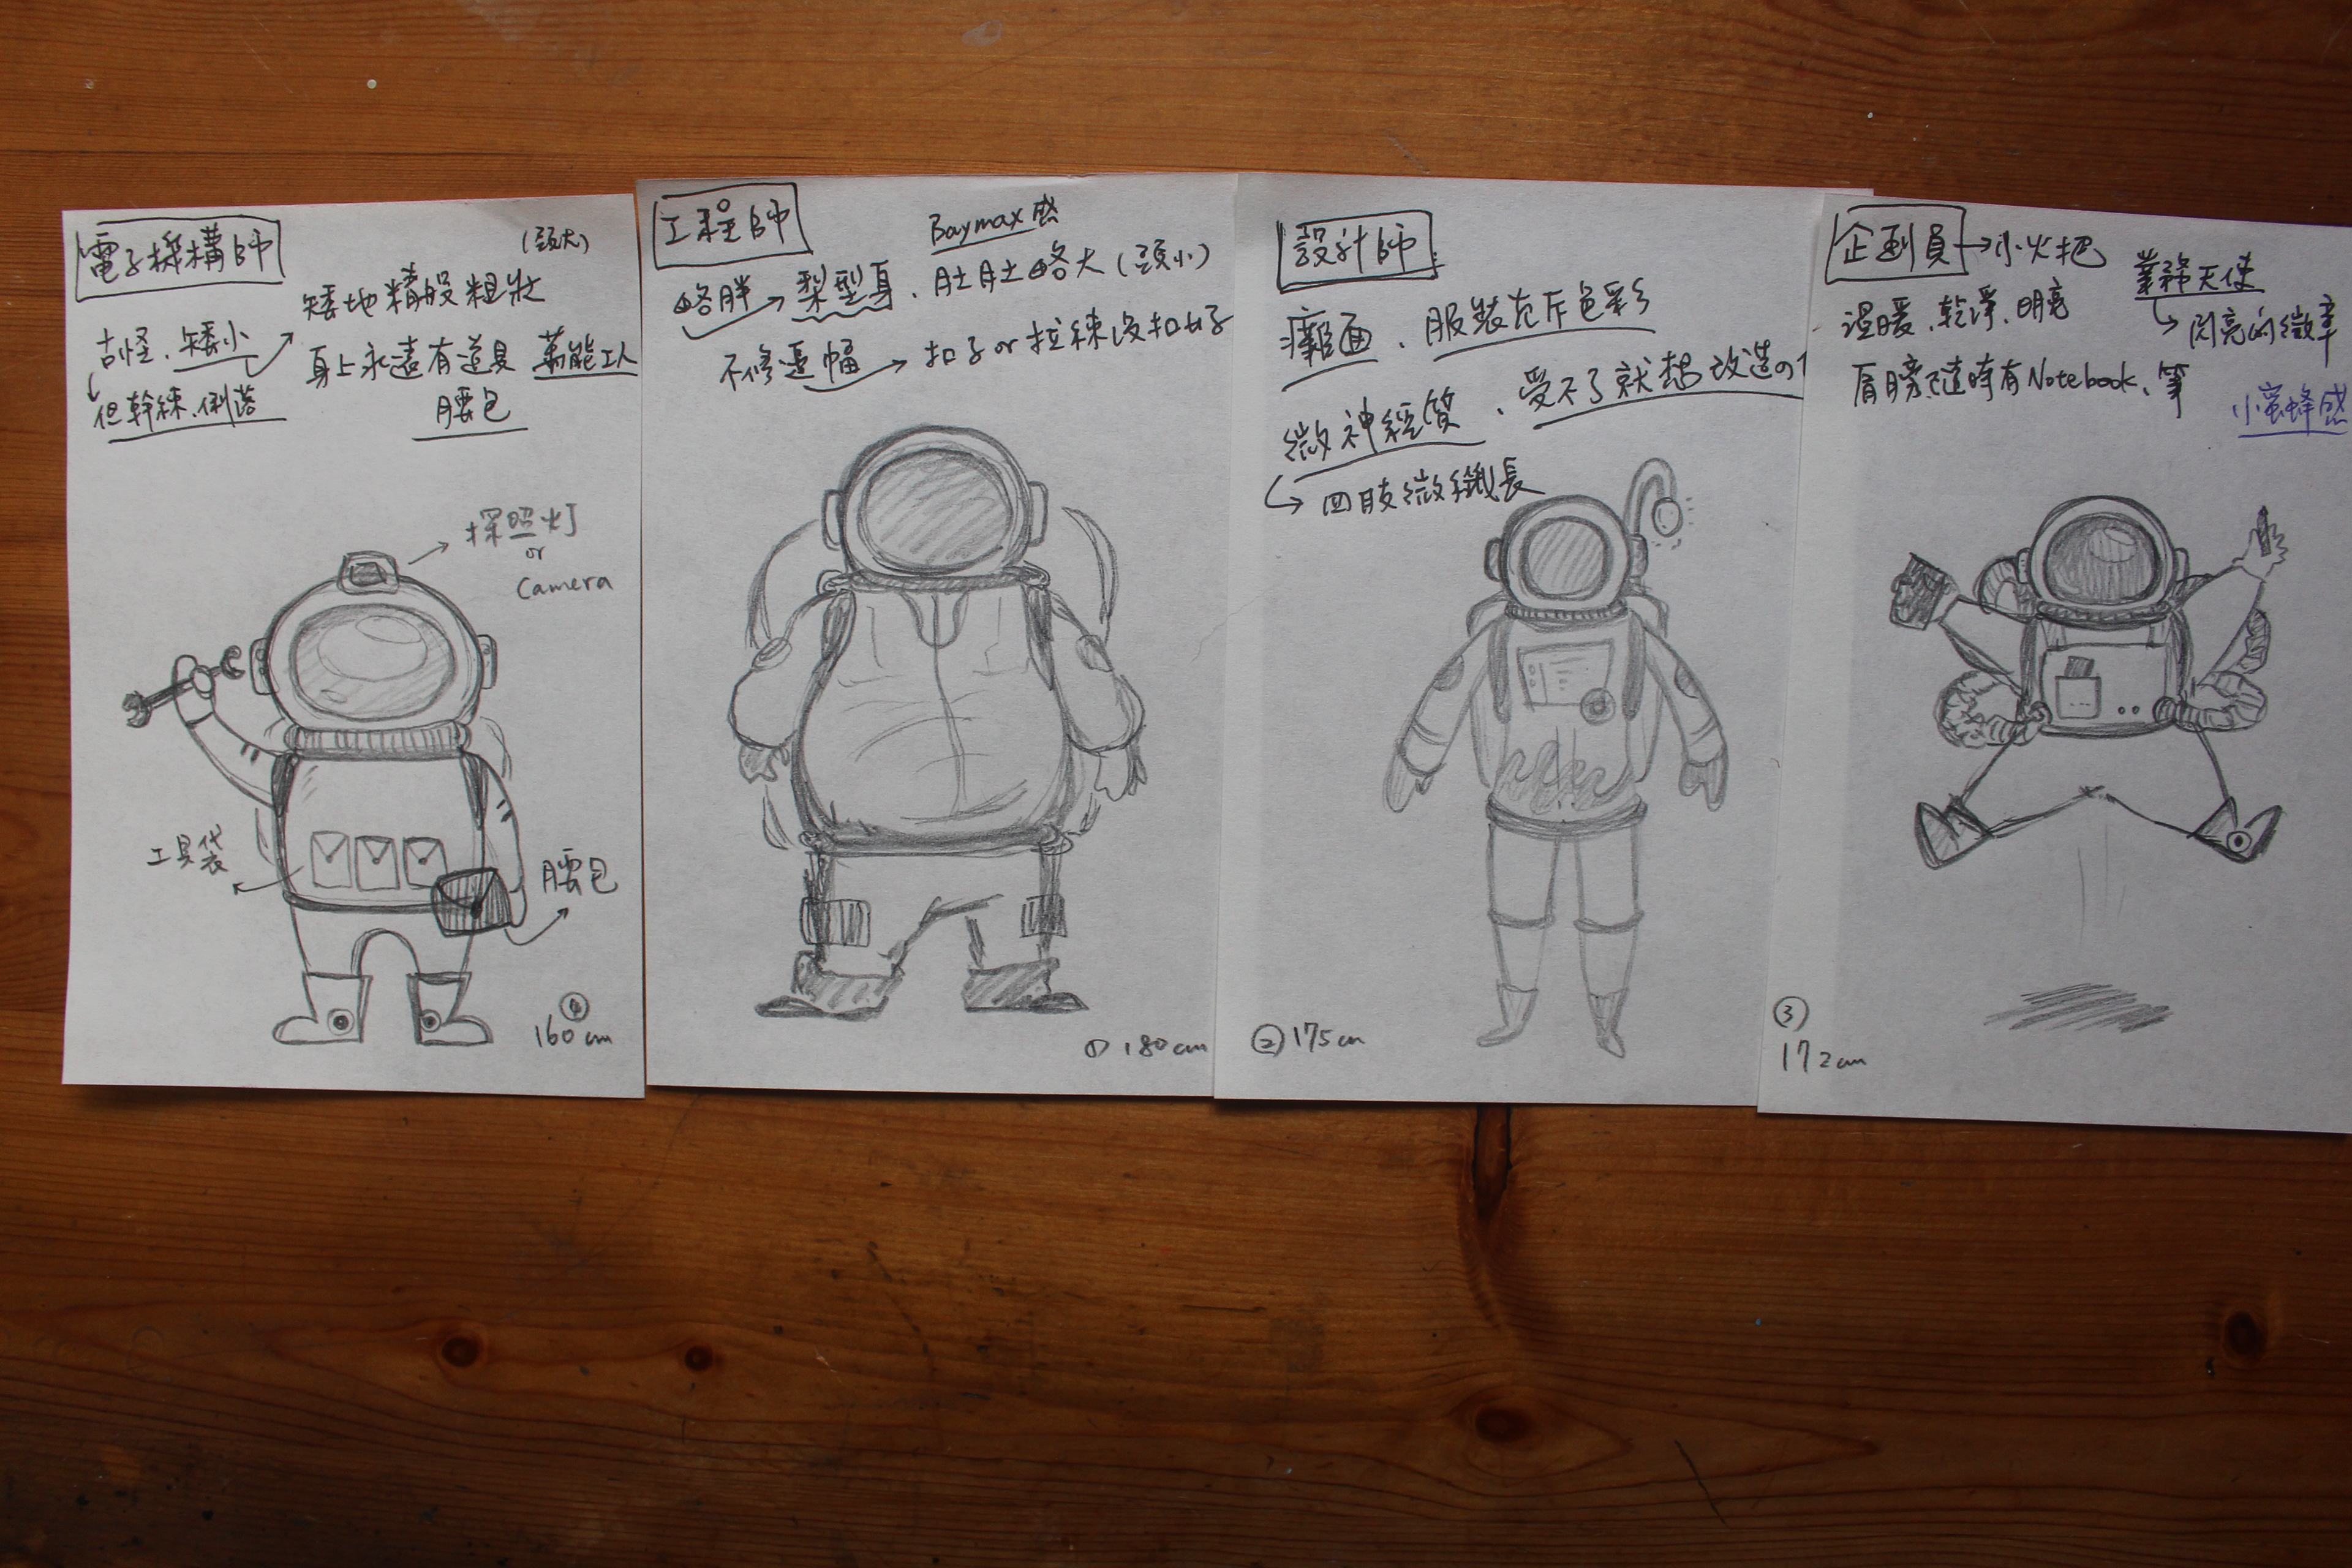 電子機構師
(頭大)
古怪、矮小
但幹練、俐落
矮地精般粗壯
身上永遠有道具 萬能工人
腰包
探照灯
or
Camera
工具袋
腰包
④
160cm
工程師
Baymax感
略胖 梨型身、肚肚略大(頭小)
不修邊幅 扣子or拉練沒扣好
① 180cm
設計師
服裝充斥色彩
微神經質、受不了就想改造の
四肢微纖長
② 175cm
企画員→小火把
業務天使
溫暖、乾淨、明亮
閃亮的徽章
肩膀隨時有Notebook、筆
小蜜蜂感
③
172cm